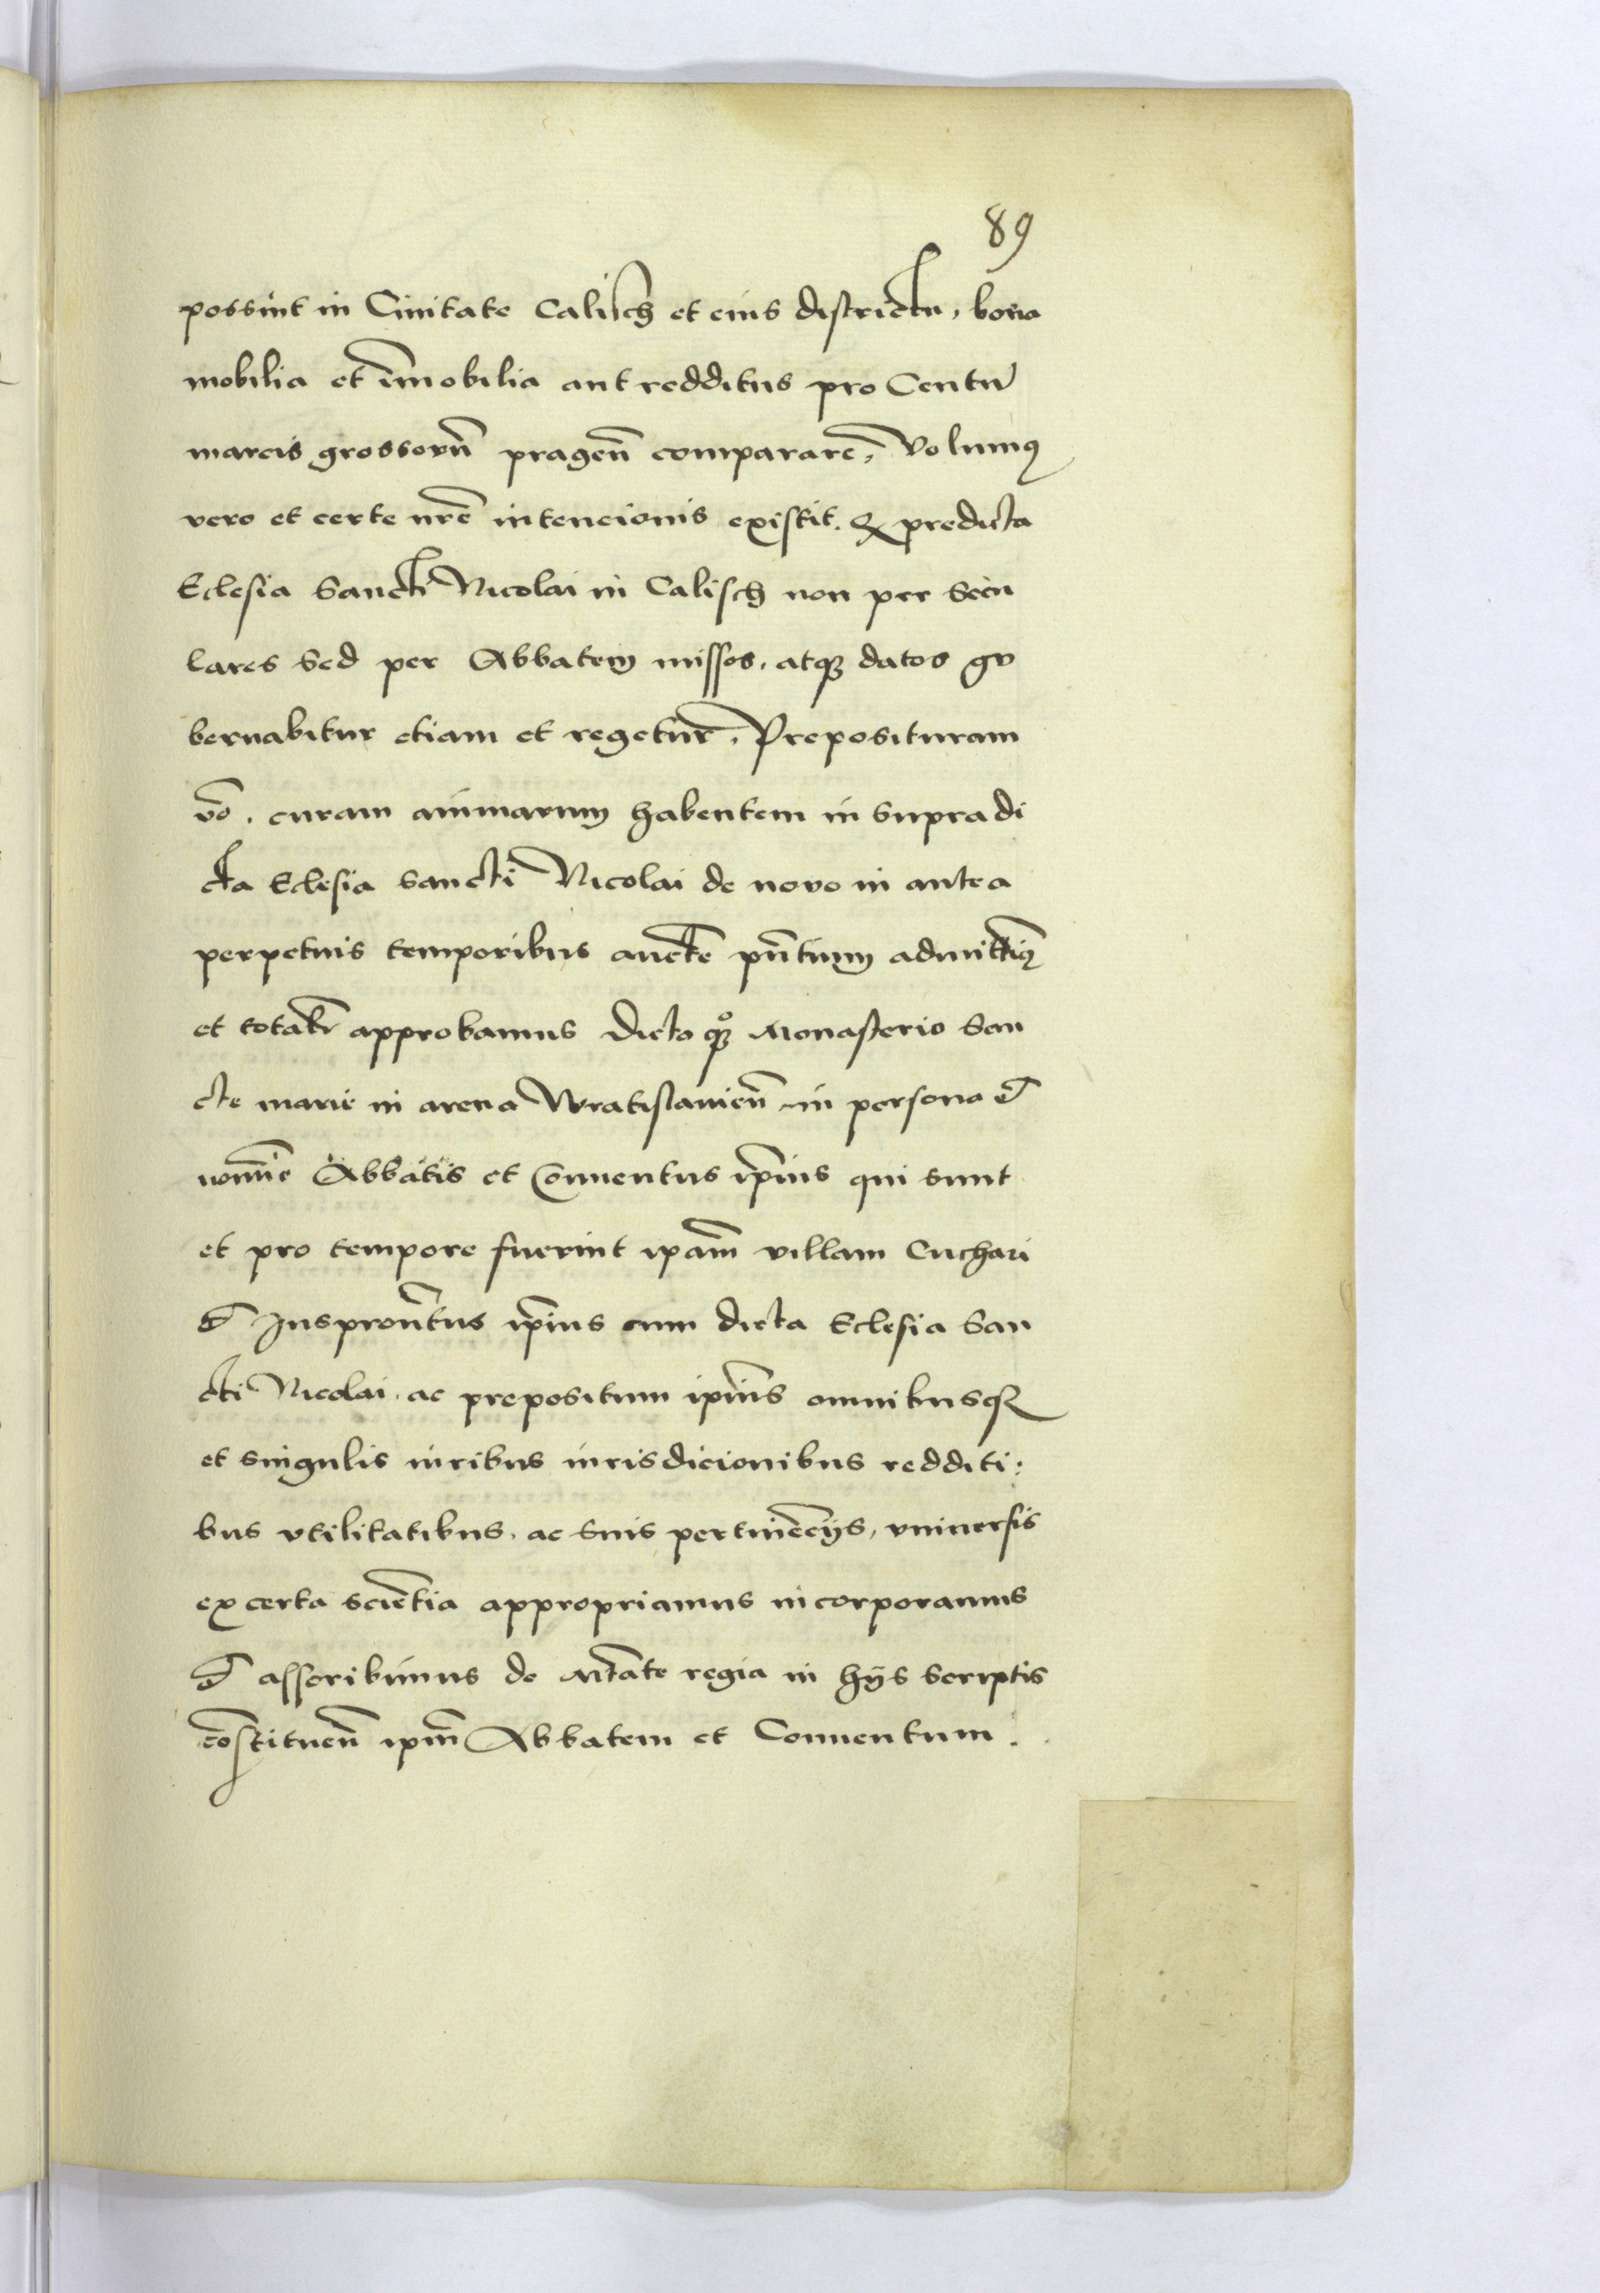 89
possint in Ciuitate Calisch et eius districtu, bona
mobilia et im̄obilia aut redditus pro Centū
marcis grossorū pragen̄ comparare, Volumꝰ
vero et certe nr̄e intencionis existit. ꝙ predicta
Eclesia Sancti Nicolai in Calisch non per Secu
lares Sed per Abbatem missos, atqꝫ datos go
bernabitur etiam et regetur, Preposituram
v̄o, curam animarum habentem in Supradi
cta Eclesia Sancti Nicolai de novo in antea
perpetuis temporibus aucte pn̄tium admittimꝰ
et totalr̄ approbamus Dicto qꝫ Monasterio San
cte marie in arena Wratislauien̄ in persona et
nomīe Abbatis et Conuentus ip̄ius qui sunt
et pro tempore fuerint ipam̄ villam Cuchari
et Juspron̄tus ip̄ius cum dicta Eclesia San
cti Nicolai, ac prepositum ip̄ius omnibusqꝫ
et singulis iuribus iurisdicionibus redditi:
bus vtilitatibus, ac suis pertinēcijs, vniuersis
ex certa sciētia appropriamus incorporamus
et asscribimus de Mtate regia in hijs scriptis
cōstituen̄ ipm̄ Abbatem et Conuentum.